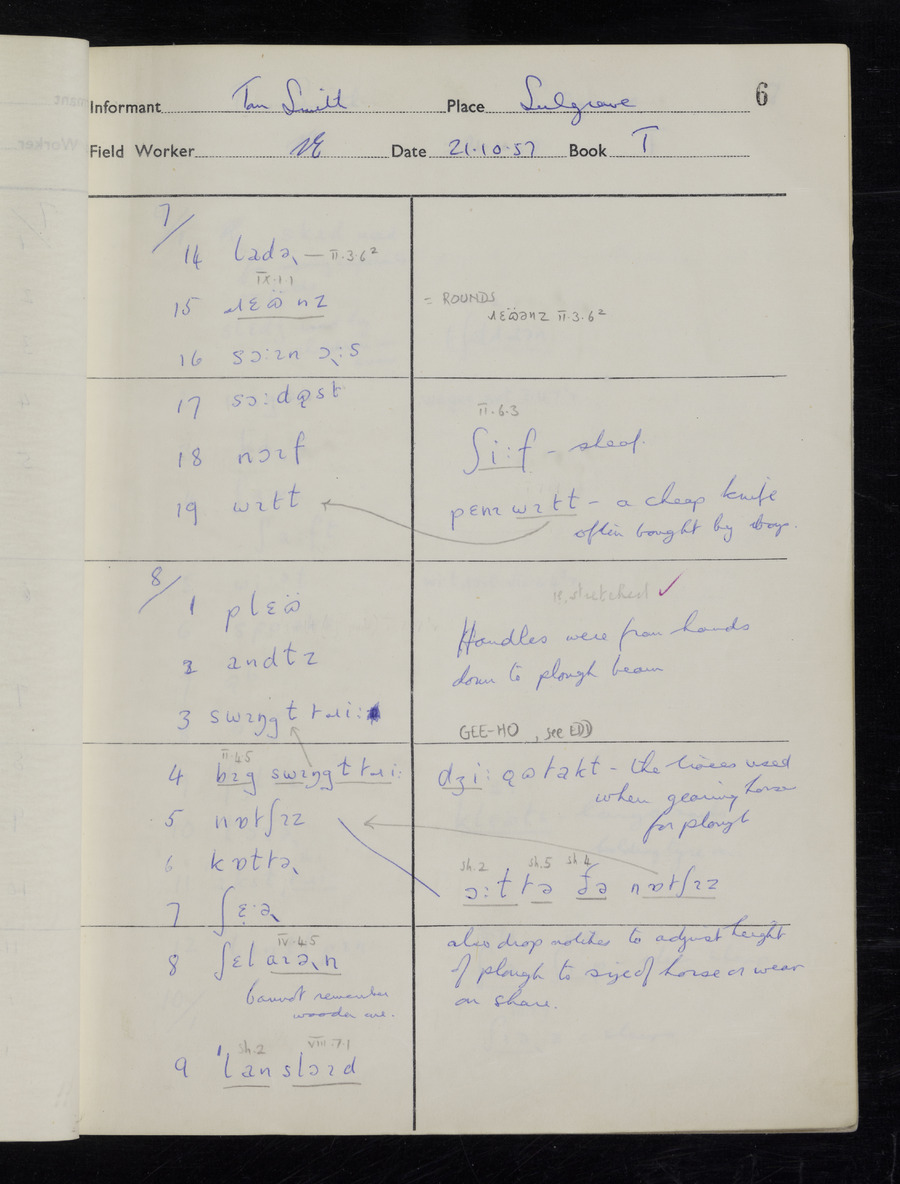 Informant Tom Smith Place Sulgrave 6
Field Worker Date 21·10·57 Book I
7/
14 ladə˞ — II·3·6²
IX·1·1
15 ɹɛω̈nz
= ROUNDS
ɹɛω̈ənz II·3·6²
16 sɔ:ɪn ɔ˞:s
17 sɔ:dϙst
18 nɔɪf
II·6·3
ʃi:f – sheaf.
19 wɪtɫ
pɛnɪ wɪtɫ – a cheap knife
often bought by boys.
8/
ie, stretched ✓
1 plɛω̈
Handles were from hands
2 andɫz
down to plough beam
3 swɪŋgɫ tɹi:
GEE-HO, see EDD
II·4·5
4 bɪg swɪŋgɫ tɹi:
dʒi: ϙωtakt – the traces used
when gearing horse
for plough
5 nɒtʃɪz
6 kɒɫtə˞
sh.2 sh.5 sh 4
ɔ:ɫ tə ðə nɒtʃɪz
7 ʃɛ:ə˞
also drop notches to adjust height
IV·4·5
8 ʃɛl aɪə˞n
of plough to size of horse or wear
on share.
Cannot remember
wooden one.
sh.2 VIII·7·1
9 ˈlan slɔɪd